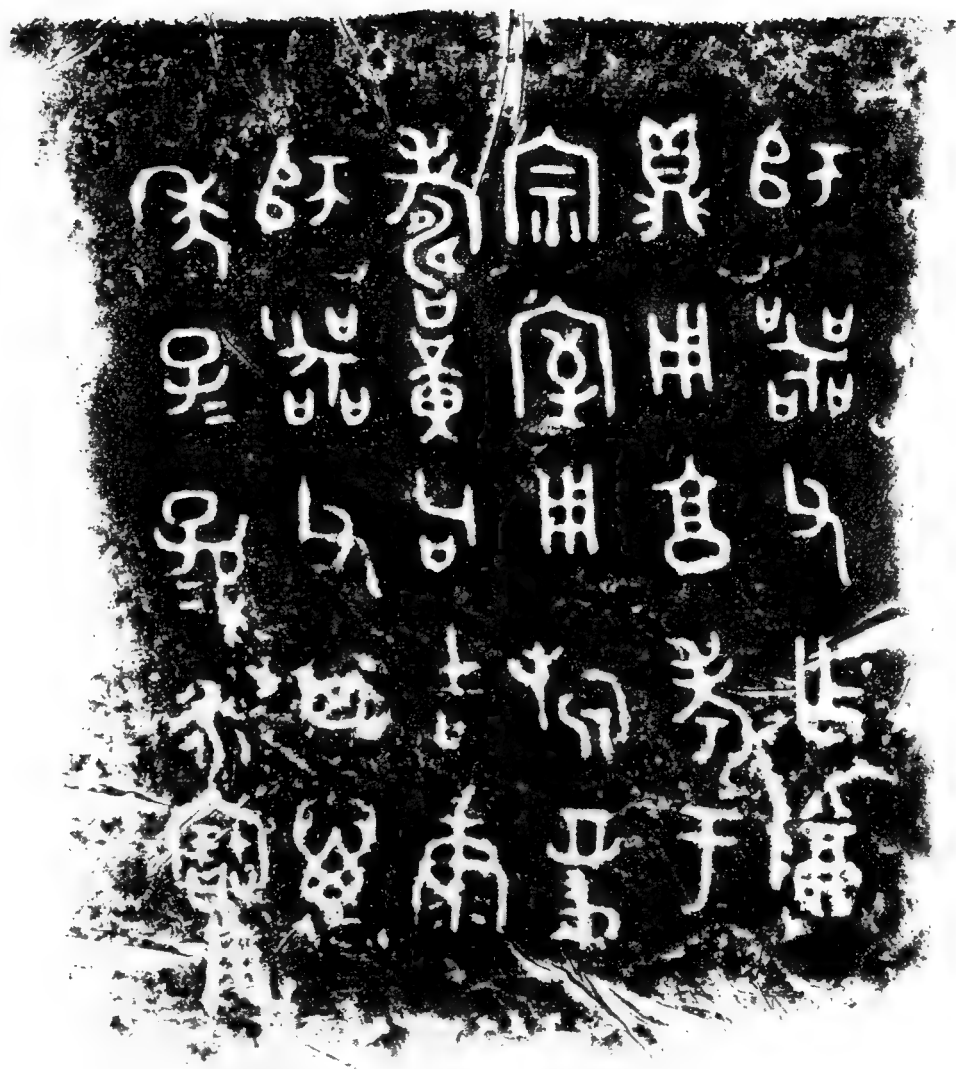 師器父乍尊
鼎用享孝于
宗室用旂眉
壽黃句吉康
師器父其萬
年子=孫=永寶用